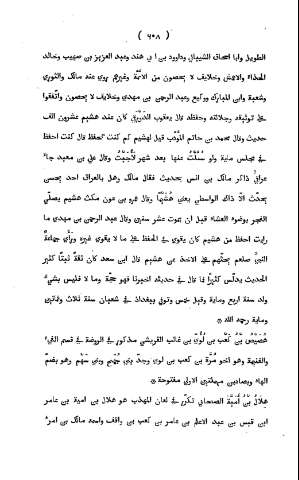 ( ٦٠٨ )
الطويل وابا اسحاق الشيباني وداوود بن ابي هند وعبد العزيز بن صهيب وخالد
الحذاء والاعمش وخلايق لا يحصون من الائمة وغيرهم روى عنه مالك والثورى
وشعبة وابن المبارك ووكيع وعبد الرحمن بن مهدى وخلايق لا يحصون واتفقوا
على توثيقه وجلالته وحفظه قال يعقوب الدورقى كان عند هشيم عشرون الف
حديث وقال محمد بن حاتم المؤدب قيل لهشيم كم كنت تحفظ قال كنت احفظ
فى مجلس ماية ولو سئلت عنها بعد شهر لاجبت وقال على بن معبد جاء
عراقى ذاكر مالك بن انس بحديث فقال مالك وهل بالعراق احد يحسن
يحدث الا ذاك الواسطى يعنى هشيما وقال عمرو بن عون مكث هشيم يصلى
الفجر بوضوء العشاء قبل ان يموت عشر سنين وقال عبد الرحمن بن مهدى ما
رايت احفظ من هشيم كان يقوى فى الحفظ على ما لا يقوى غيره ورأى جماعة
النبى صلعم يحثهم على الاخذ عن هشيم قال ابن سعد كان ثقة ثبتا كثير
الحديث يدلس كثيرا فما قال فى حديثه اخبرنا فهو حجة وما لا فليس بشىء
ولد سنة اربع وماية وقيل خمس وتوفى ببغداد فى شعبان سنة ثلاث وثمانين
وماية رحمه الله *
هصيص بن كعب بن لؤى بن غالب القريشى مذكور فى الروضة فى قسم الفىء
والغنيمة وهو اخو مرة بن كعب بن لوى وجد بنى جمح وبنى سهم وهو بضم
الهاء وبصادين مهملتين الاولى مفتوحة *
هلال بن امية الصحابى تكرر فى لعان المهذب هو هلال بن امية بن عامر
ابن قيس بن عبد الاعلم بن عامر بن كعب بن واقف واسمه مالك بن امرء